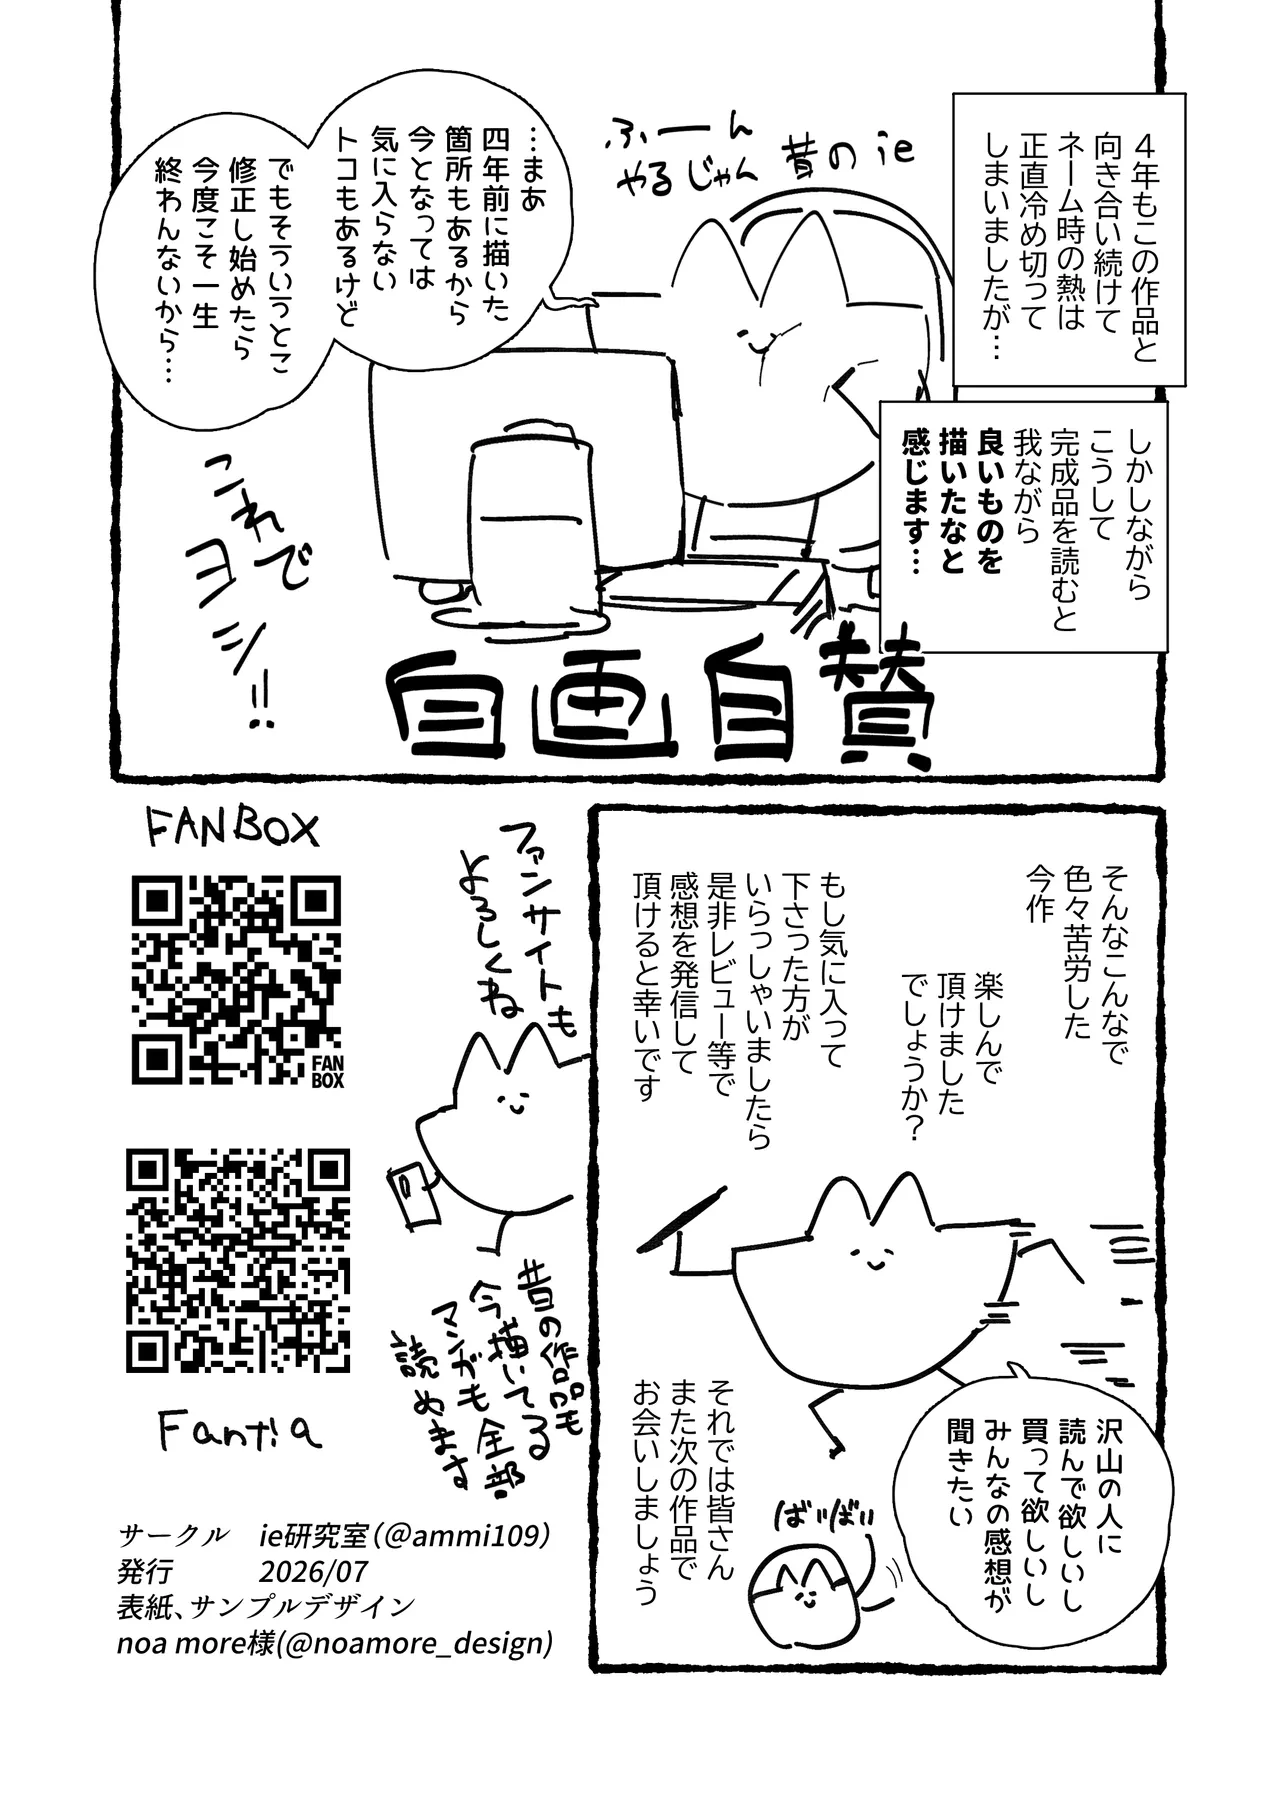 ４年もこの作品と
向き合い続けて
ネーム時の熱は
正直冷め切って
しまいましたが…
しかしながら
こうして
完成品を読むと
我ながら
良いものを
描いたなと
感じます…
ふーーん
やるじゃん 昔のie
…まあ
四年前に描いた
箇所もあるから
今となっては
気に入らない
トコもあるけど
でもそういうとこ
修正し始めたら
今度こそ一生
終わんないから…
これで
ヨシ!!
自画自賛
そんなこんなで
色々苦労した
今作
楽しんで
頂けました
でしょうか？
もし気に入って
下さった方が
いらっしゃいましたら
是非レビュー等で
感想を発信して
頂けると幸いです
沢山の人に
読んで欲しいし
買って欲しいし
みんなの感想が
聞きたい
それでは皆さん
また次の作品で
お会いしましょう
ばいばい
FANBOX
FAN
BOX
ファンサイトも
よろしくね
昔の作品も
今描いてる
マンガも全部
読めます
Fantia
サークル　ie研究室（@ammi109）
発行　2026/07
表紙、サンプルデザイン
noa more様(@noamore_design)